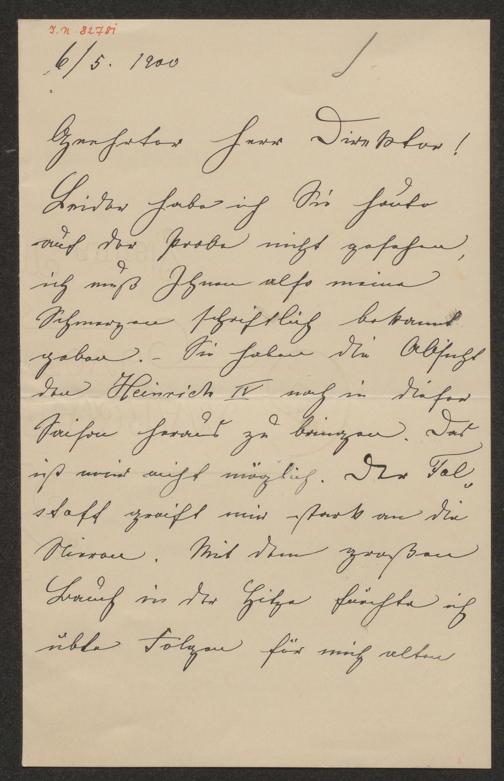 I. N. 82781
6/5. 1900
Geehrter Herr Direktor!
Leider habe ich Sie heute
auf der Probe nicht gesehen,
ich muß Ihnen also meine
Schmerzen schriftlich bekannt
geben. – Sie haben die Absicht
den Heinrich IV noch in dieser
Saison heraus zu bringen. Das
ist mir nicht möglich. Der Fal„
staff greift mir stark an die
Nieren. Mit dem großen
Bauch in der Hitze fürchte ich
üble Folgen für mich alten